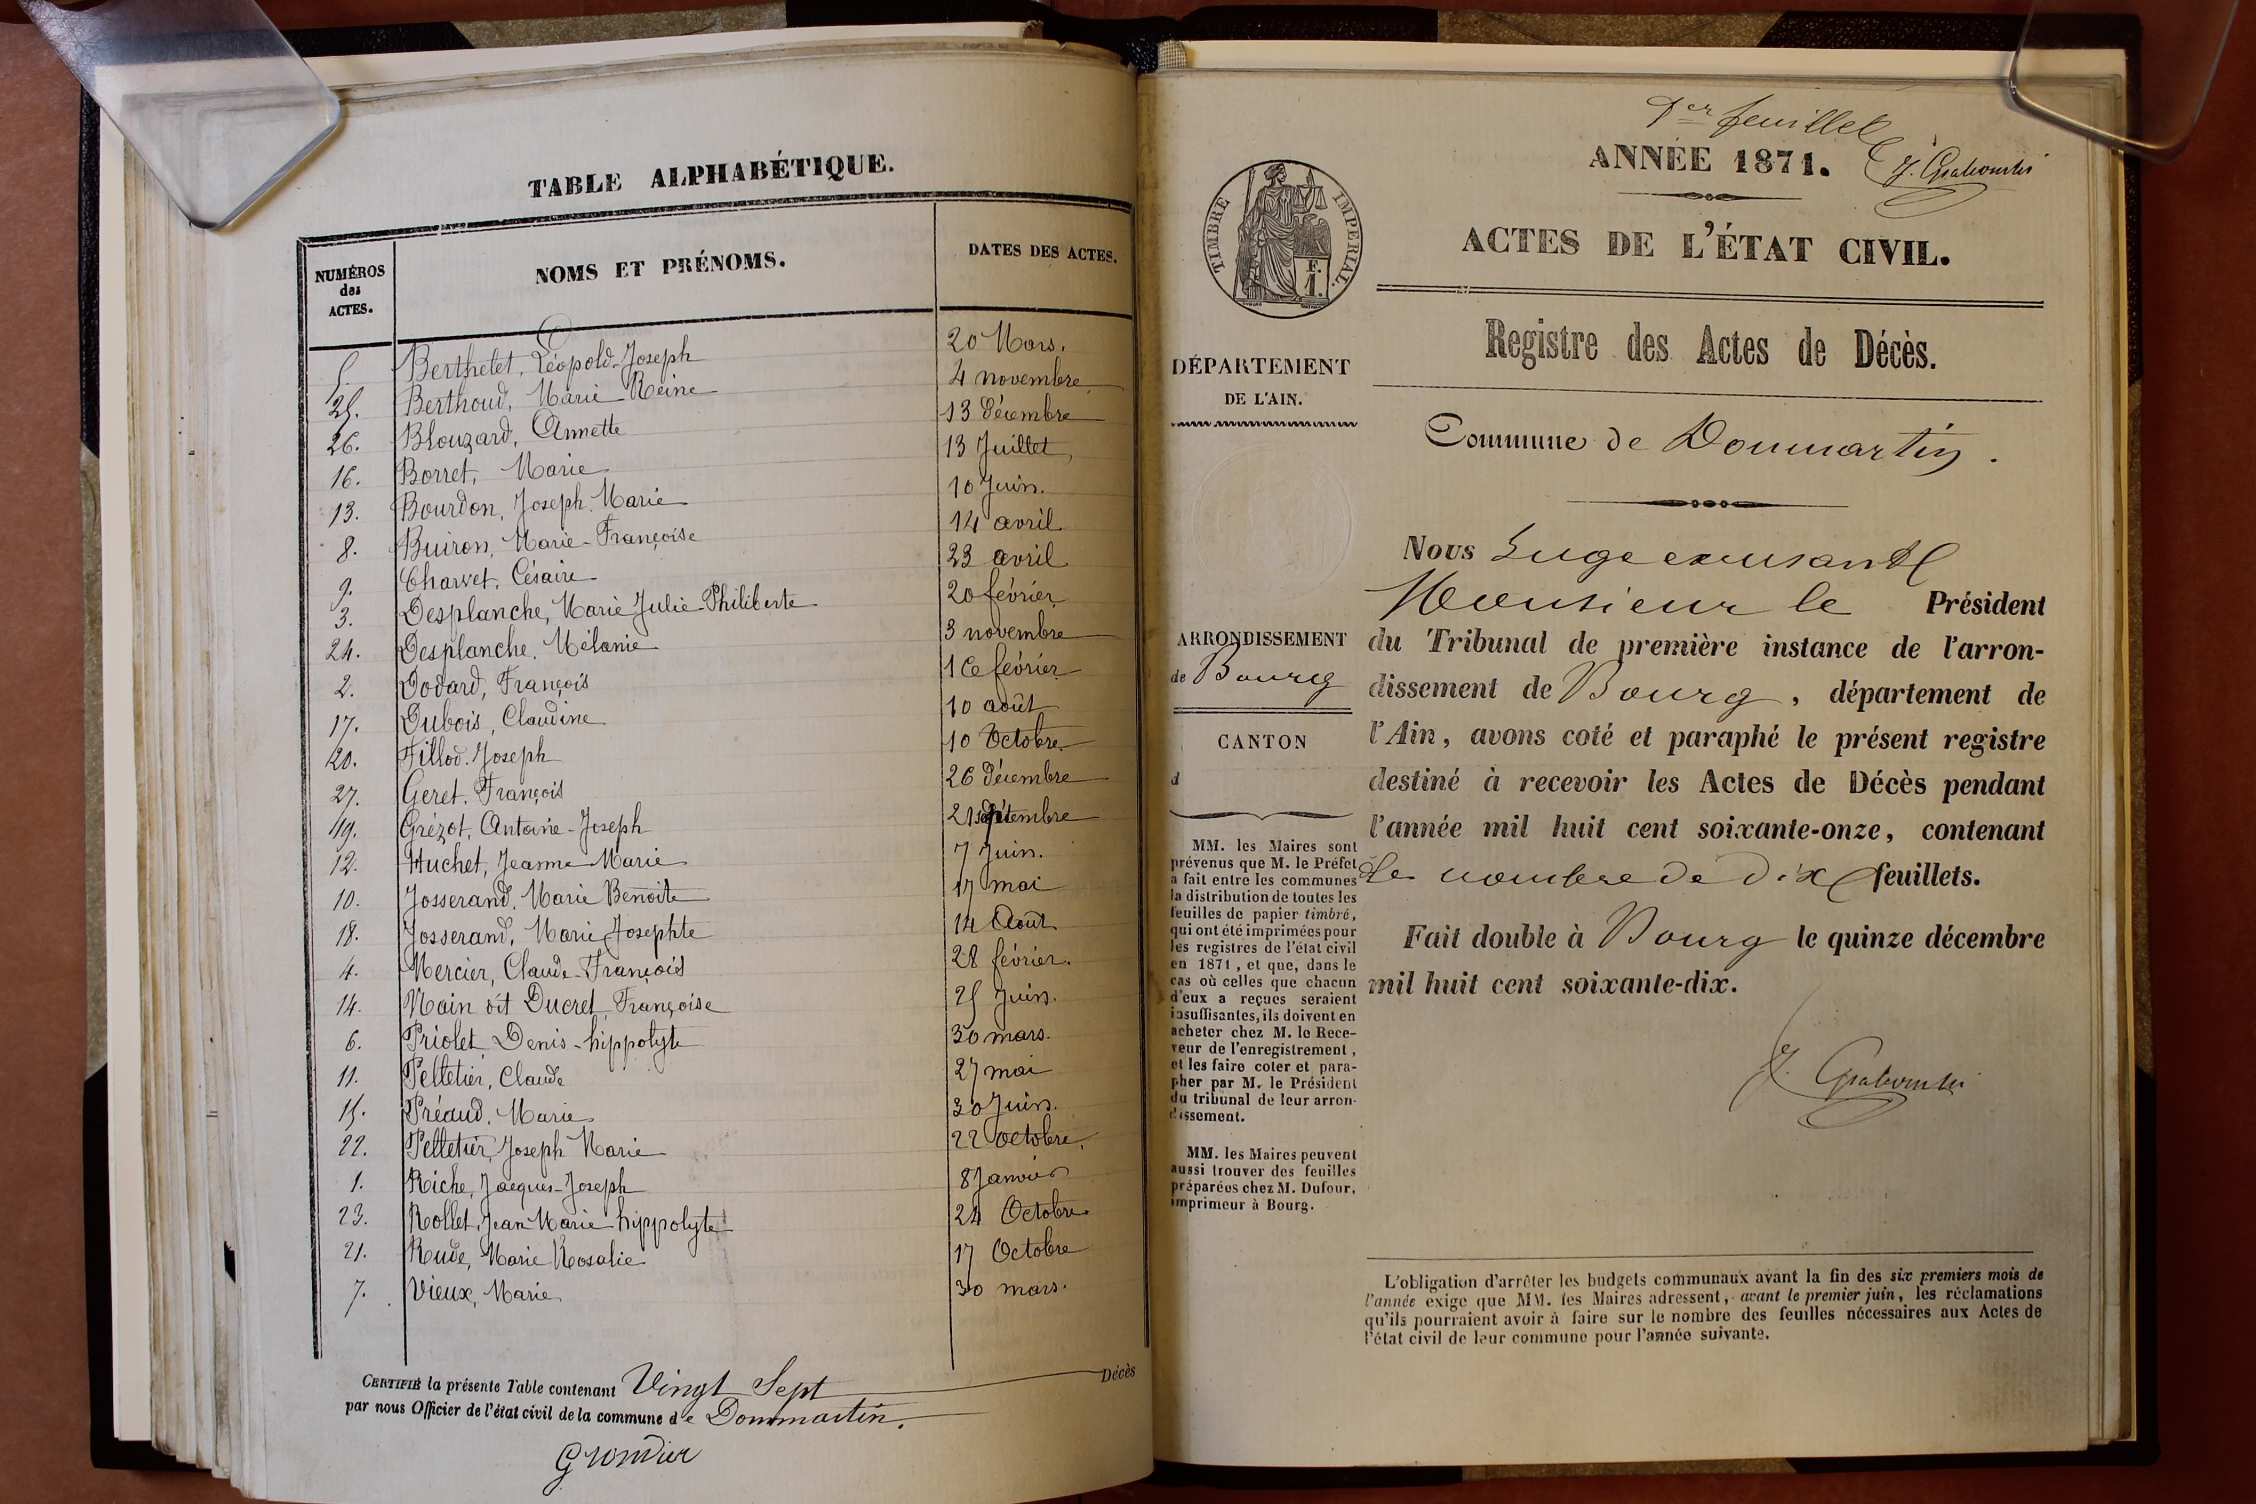 TABLE ALPHABÉTIQUE.
NUMÉROS des ACTES. NOMS ET PRÉNOMS. DATES DES ACTES.
5. Berthelet, Léopold-Joseph 20 Mars.
25. Berthoud, Marie Reine 4 novembre
26. Blouzard, Annette 13 Décembre
16. Borret, Marie 13 Juillet
13. Bourdon, Joseph Marie 10 Juin.
8. Buiron, Marie-Françoise 14 avril
9. Charvet, Césaire 23 avril
3. Desplanche, Marie Julie-Philiberte 20 février
24. Desplanche, Mélanie 3 novembre
2. Dodard, François 16 février
17. Dubois, Claudine 10 août
20. Fillod. Joseph 10 Octobre
27. Geret. François 26 Décembre
19. Grézot, Antoine-Joseph 21 septembre
12. Huchet, Jeanne Marie 7 Juin.
10. Josserand, Marie Benoite 17 mai
18. Josserand, Marie Josephte 14 Août
4. Mercier, Claude-François 28 février.
14. Nain dit Ducret, Françoise 25 Juin.
6. Priolet Denis-hippolyte 30 mars.
11. Pelletier, Claude 27 mai
15. Préaud, Marie 30 Juin.
22. Pelletier, Joseph Marie 22 octobre.
1. Riche, Jacques-Joseph 8 Janvier
23. Rollet, Jean Marie hippolyte 24 Octobre
21. Rude, Marie Rosalie 17 Octobre
7. Vieux, Marie 30 mars.
CERTIFIÉ la présente Table contenant Vingt Sept Décès
par nous Officier de l'état civil de la commune de Dommartin.
1er feuillet
ANNÉE 1871.
TIMBRE IMPERIAL.
F.
1.
ACTES DE L'ÉTAT CIVIL.
Registre des Actes de Décès.
Commune de Dommartin.
DÉPARTEMENT
DE L'AIN.
ARRONDISSEMENT
de Bourg
CANTON
d
MM. les Maires sont
prévenus que M. le Préfet
a fait entre les communes
la distribution de toutes les
feuilles de papier timbré,
qui ont été imprimées pour
les registres de l'état civil
en 1871, et que, dans le
cas où celles que chacun
d'eux a reçues seraient
insuffisantes, ils doivent en
acheter chez M. le Rece-
veur de l'enregistrement,
et les faire coter et para-
pher par M. le Président
du tribunal de leur arron-
dissement.
MM. les Maires peuvent
aussi trouver des feuilles
préparées chez M. Dufour,
imprimeur à Bourg.
Nous
Monsieur le Président
du Tribunal de première instance de l'arron-
dissement de Bourg, département de
l'Ain, avons coté et paraphé le présent registre
destiné à recevoir les Actes de Décès pendant
l'année mil huit cent soixante-onze, contenant
le nombre de dix feuillets.
Fait double à Bourg le quinze décembre
mil huit cent soixante-dix.
L'obligation d'arrêter les budgets communaux avant la fin des six premiers mois de
l'année exige que MM. les Maires adressent, avant le premier juin, les réclamations
qu'ils pourraient avoir à faire sur le nombre des feuilles nécessaires aux Actes de
l'état civil de leur commune pour l'année suivante.